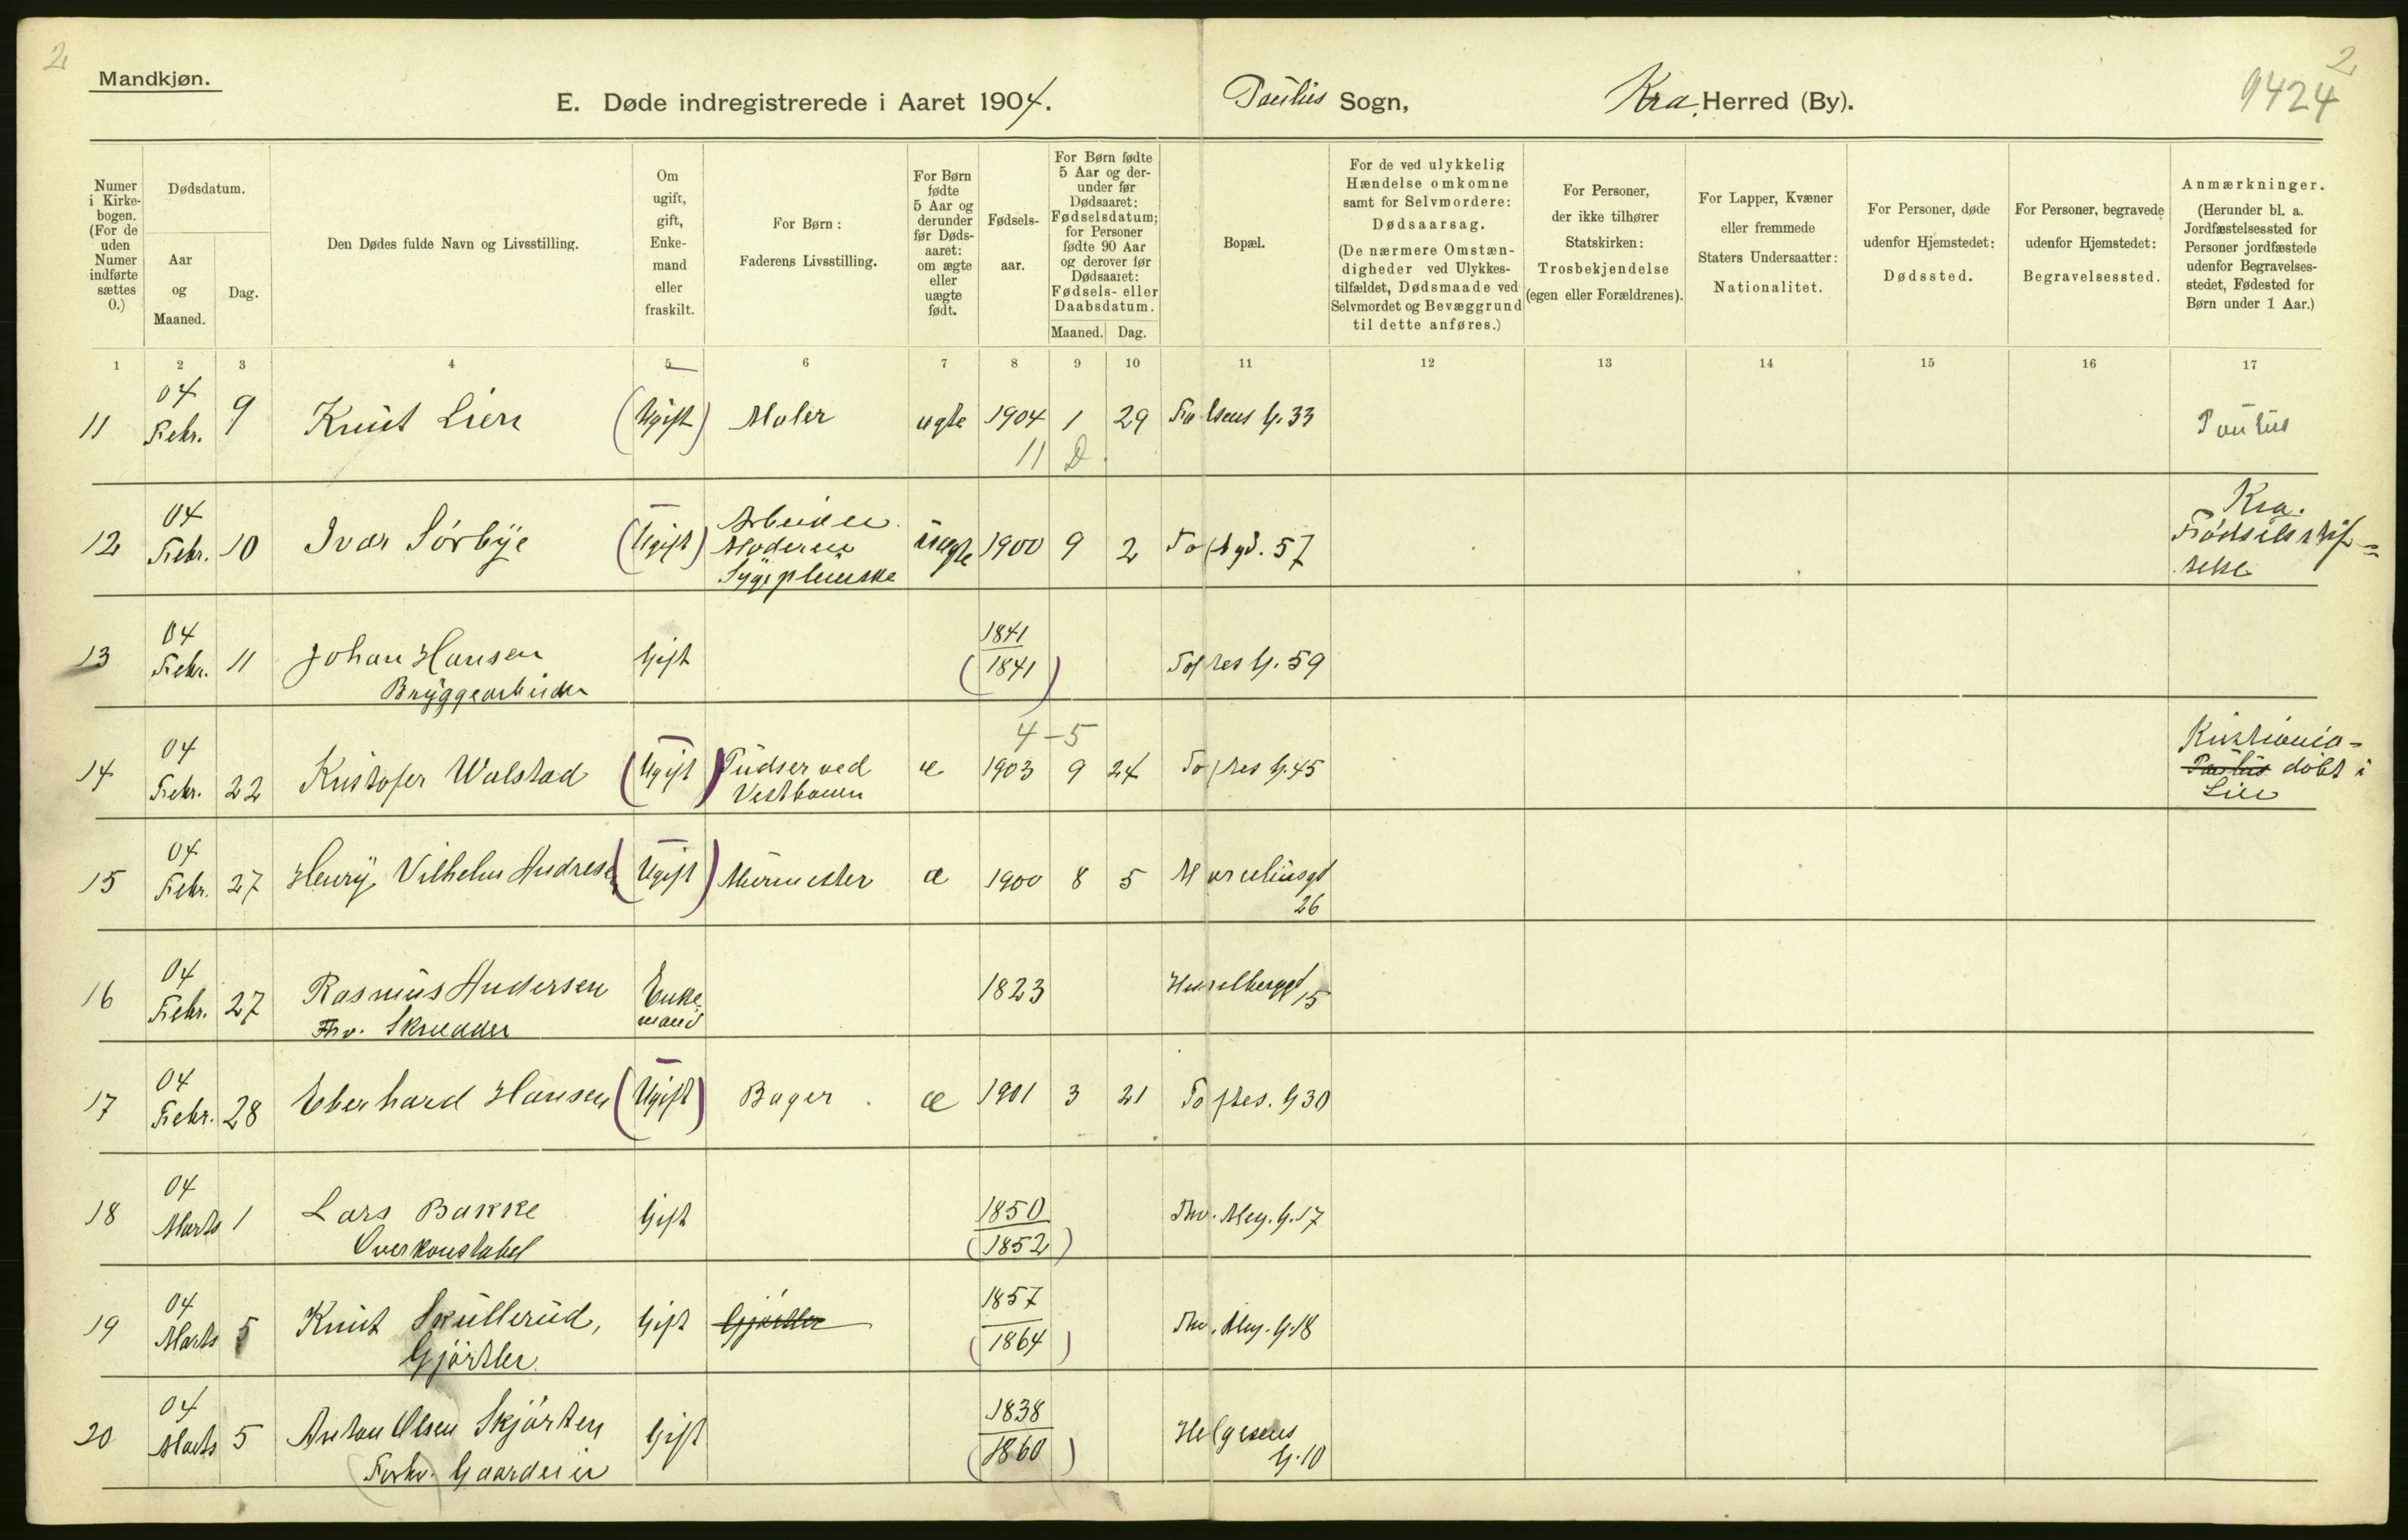 2
2
Mandkjøn.
E. Døde indregistrerede i Aaret 1904. Paulus Sogn, Kra. Herred (By). 9424
Numer i Kirkebogen. (For de uden Numer indførte sættes 0.)
Dødsdatum.
Aar og Maaned.
Dag.
Den Dødes fulde Navn og Livsstilling.
Om ugift, gift, Enkemand eller fraskilt.
For Børn: Faderens Livsstilling.
For Børn fødte 5 Aar og derunder før Dødsaaret: om ægte eller uægte født.
Fødselsaar.
For Børn fødte 5 Aar og derunder før Dødsaaret: Fødselsdatum; for Personer fødte 90 Aar og derover før Dødsaaret: Fødsels- eller Daabsdatum.
Maaned. Dag.
Bopæl.
For de ved ulykkelig Hændelse omkomne samt for Selvmordere: Dødsaarsag. (De nærmere Omstændigheder ved Ulykkestilfældet, Dødsmaade ved Selvmordet og Bevæggrund til dette anføres.)
For Personer, der ikke tilhører Statskirken: Trosbekjendelse (egen eller Forældrenes).
For Lapper, Kvæner eller fremmede Staters Undersaatter: Nationalitet.
For Personer, døde udenfor Hjemstedet: Dødssted.
For Personer, begravede udenfor Hjemstedet: Begravelsessted.
Anmærkninger. (Herunder bl. a. Jordfæstelsessted for Personer jordfæstede udenfor Begravelsesstedet, Fødested for Børn under 1 Aar.)
1 2 3 4 5 6 7 8 9 10 11 12 13 14 15 16 17
04
11 Febr. 9 Knut Lien (Ugift) Maler ægte 1904 1 29 G. 33 Paulus
11 D.
04 Arbeider Kra.
12 Febr. 10 Ivar Sörbye (Ugift) Moderen uægte 1900 9 2 Toftsgd. 57 Fødselsstif=
Sygepleierske telse
04 1841
13 Febr. 11 Johan Hansen Gift (1841) Toftes G. 59
Bryggearbeider
4-5
04 Kristiania=
14 Febr. 22 Kristofer Walstad (Ugift) Pudser ved æ 1903 9 24 Toftes G. 45 Paulus döbt i
Vestbanen Lier
04
15 Febr. 27 Henry Vilhelm Andresen (Ugift) Murmester æ 1900 8 5 Marseliusgd
26
04
16 Febr. 27 Rasmus Andersen Enke= 1823 Hesselberggd 15
Fhv. Skredder mand
04
17 Febr. 28 Eberhard Hansen (Ugift) Bager æ 1901 3 21 Toftes. G 30
04
18 Marts 1 Lars Bakke Gift 1850 Thv. Mey. G. 17
Overkonstabel (1852)
04 1857
19 Marts 5 Knut Skullerud, Gift Gjørtler (1864) Thv. Mey. G. 18
Gjörtler
04 1838
20 Marts 5 Anton Olsen Skjörten Gift (1860) Helgesens
(Forhv.) Gaardeier G. 10